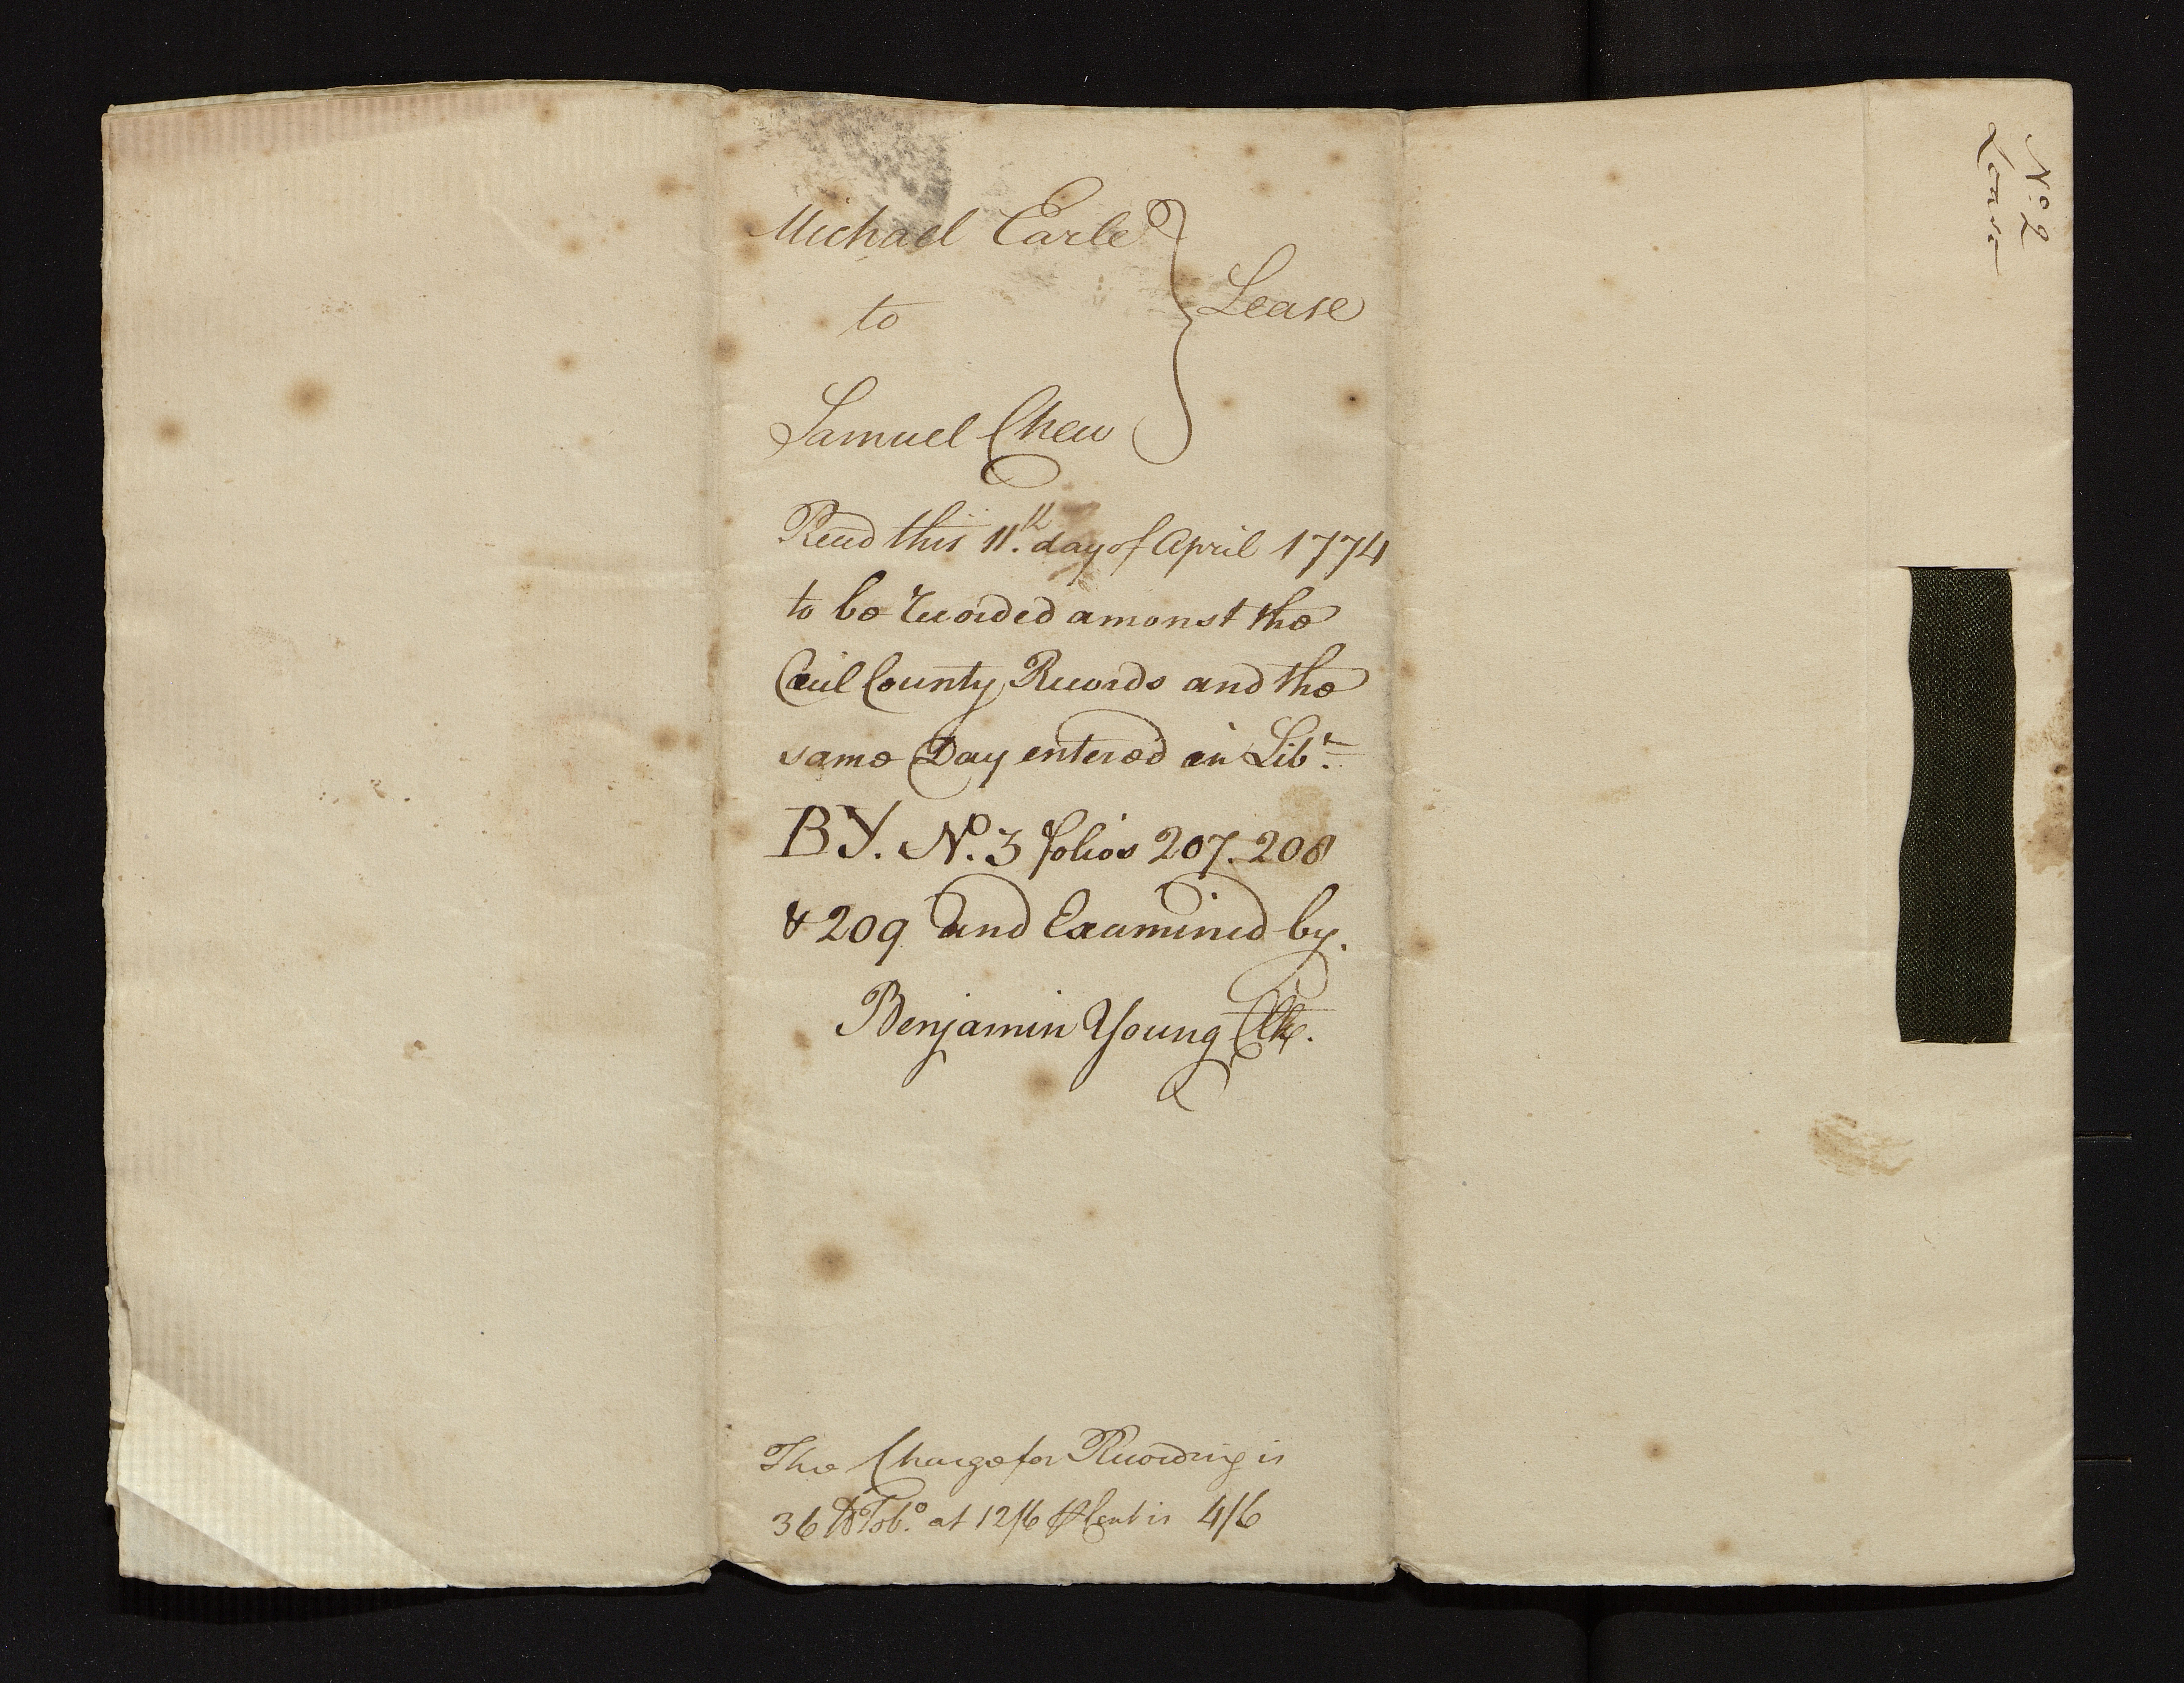 Michael Earle
to
Lease
Samuel Chew
Recd this 11.th day of April 1774
to be recorded amonst the
Cecil County Records and the
same Day entered in Libr.
BY. No. 3 folios 207. 208
& 209 and Examined by.
Benjamin Young Clk.
The Charge for Recording is
36 lb Tobo. at 12/6 ⅌ Cent is 4/6
No. 2
Lease